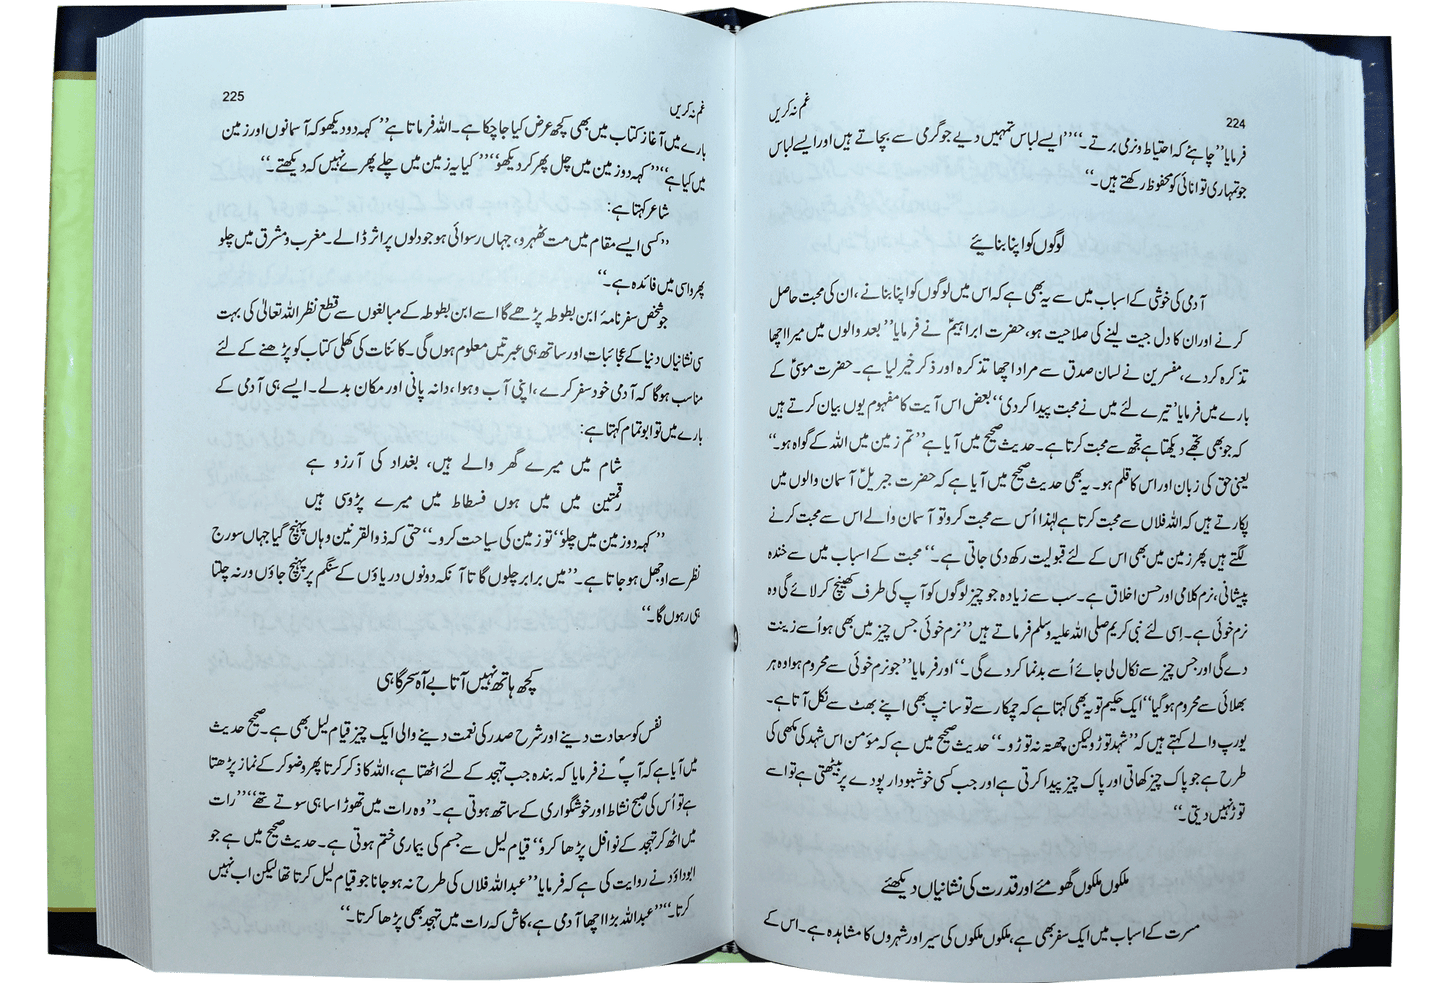 224
غم نہ کریں
فرمایا ’’چاہئے کہ احتیاط و نرمی برتے۔‘‘ ’’ایسے لباس تمہیں دیے جو گرمی سے بچاتے ہیں اور ایسے لباس
جو تمہاری توانائی کو محفوظ رکھتے ہیں۔‘‘
لوگوں کو اپنا بنائیے
آدمی کی خوشی کے اسباب میں سے یہ بھی ہے کہ اس میں لوگوں کو اپنا بنانے، ان کی محبت حاصل
کرنے اور ان کا دل جیت لینے کی صلاحیت ہو، حضرت ابراہیمؑ نے فرمایا ’’بعد والوں میں میرا اچھا
تذکرہ کر دے، مفسرین نے لسان صدق سے مراد اچھا تذکرہ اور ذکر خیر لیا ہے۔ حضرت موسیٰؑ کے
بارے میں فرمایا ’تیرے لئے میں نے محبت پیدا کر دی‘‘ بعض اس آیت کا مفہوم یوں بیان کرتے ہیں
کہ جو بھی تجھے دیکھتا ہے تجھ سے محبت کرتا ہے۔ حدیث صحیح میں آیا ہے ’’تم زمین میں اللہ کے گواہ ہو۔‘‘
یعنی حق کی زبان اور اس کا قلم ہو۔ یہ بھی حدیث صحیح میں آیا ہے کہ حضرت جبریلؑ آسمان والوں میں
پکارتے ہیں کہ اللہ فلاں سے محبت کرتا ہے لہٰذا اُس سے محبت کرو تو آسمان والے اس سے محبت کرنے
لگتے ہیں پھر زمین میں بھی اس کے لئے قبولیت رکھ دی جاتی ہے۔‘‘ محبت کے اسباب میں سے خندہ
پیشانی، نرم کلامی اور حسن اخلاق ہے۔ سب سے زیادہ جو چیز لوگوں کو آپ کی طرف کھینچ کر لائے گی وہ
نرم خوئی ہے۔ اِسی لئے نبی کریم صلی اللہ علیہ وسلم فرماتے ہیں ’’نرم خوئی جس چیز میں بھی ہو اُسے زینت
دے گی اور جس چیز سے نکال لی جائے اُسے بدنما کر دے گی۔‘‘ اور فرمایا ’’جو نرم خوئی سے محروم ہوا وہ ہر
بھلائی سے محروم ہو گیا‘‘ ایک حکیم تو یہ بھی کہتا ہے کہ چمکار سے تو سانپ بھی اپنے بھٹ سے نکل آتا ہے۔
یورپ والے کہتے ہیں کہ ’’شہد توڑو لیکن چھتہ نہ توڑو۔‘‘ حدیث صحیح میں ہے کہ مؤمن اس شہد کی مکھی کی
طرح ہے جو پاک چیز کھاتی اور پاک چیز پیدا کرتی ہے اور جب کسی خوشبودار پودے پر بیٹھتی ہے تو اسے
توڑ نہیں دیتی۔‘‘
ملکوں ملکوں گھومئے اور قدرت کی نشانیاں دیکھئے
مسرت کے اسباب میں ایک سفر بھی ہے، ملکوں ملکوں کی سیر اور شہروں کا مشاہدہ ہے۔ اس کے
225
غم نہ کریں
بارے میں آغاز کتاب میں بھی کچھ عرض کیا جا چکا ہے۔ اللہ فرماتا ہے ’’کہہ دو دیکھو کہ آسمانوں اور زمین
میں کیا ہے‘‘ ’’کہہ دو زمین میں چل پھر کر دیکھو‘‘ ’’کیا یہ زمین میں چلے پھرے نہیں کہ دیکھتے۔‘‘
شاعر کہتا ہے:
’’کسی ایسے مقام میں مت ٹھہرو، جہاں رسوائی ہو جو دلوں پر اثر ڈالے۔ مغرب و مشرق میں چلو
پھرو اسی میں فائدہ ہے۔‘‘
جو شخص سفرنامۂ ابن بطوطہ پڑھے گا اسے ابن بطوطہ کے مبالغوں سے قطع نظر اللہ تعالیٰ کی بہت
سی نشانیاں دنیا کے عجائبات اور ساتھ ہی عبرتیں معلوم ہوں گی۔ کائنات کی کھلی کتاب کو پڑھنے کے لئے
مناسب ہوگا کہ آدمی خود سفر کرے، اپنی آب و ہوا، دانہ پانی اور مکان بدلے۔ ایسے ہی آدمی کے
بارے میں تو ابوتمام کہتا ہے:
شام میں میرے گھر والے ہیں، بغداد کی آرزو ہے
رقمتین میں میں ہوں فسطاط میں میرے پڑوسی ہیں
’’کہہ دو زمین میں چلو‘‘ تو زمین کی سیاحت کرو۔‘‘ حتیٰ کہ ذوالقرنین وہاں پہنچ گیا جہاں سورج
نظر سے اوجھل ہو جاتا ہے۔ ’’میں برابر چلوں گا تا آنکہ دونوں دریاؤں کے سنگم پر پہنچ جاؤں ورنہ چلتا
ہی رہوں گا۔‘‘
کچھ ہاتھ نہیں آتا بے آہ سحر گاہی
نفس کو سعادت دینے اور شرح صدر کی نعمت دینے والی ایک چیز قیام لیل بھی ہے۔ صحیح حدیث
میں آیا ہے کہ آپؐ نے فرمایا کہ بندہ جب تہجد کے لئے اٹھتا ہے، اللہ کا ذکر کرتا پھر وضو کر کے نماز پڑھتا
ہے تو اُس کی صبح نشاط اور خوشگواری کے ساتھ ہوتی ہے۔ ’’وہ رات میں تھوڑا سا ہی سوتے تھے‘‘ ’’رات
میں اٹھ کر تہجد کے نوافل پڑھا کرو‘‘ قیام لیل سے جسم کی بیماری ختم ہوتی ہے۔ حدیث صحیح میں ہے جو
ابوداؤد نے روایت کی ہے کہ فرمایا ’’عبداللہ فلاں کی طرح نہ ہو جانا جو قیام لیل کرتا تھا لیکن اب نہیں
کرتا۔‘‘ ’’عبداللہ بڑا اچھا آدمی ہے، کاش کہ رات میں تہجد بھی پڑھا کرتا۔‘‘